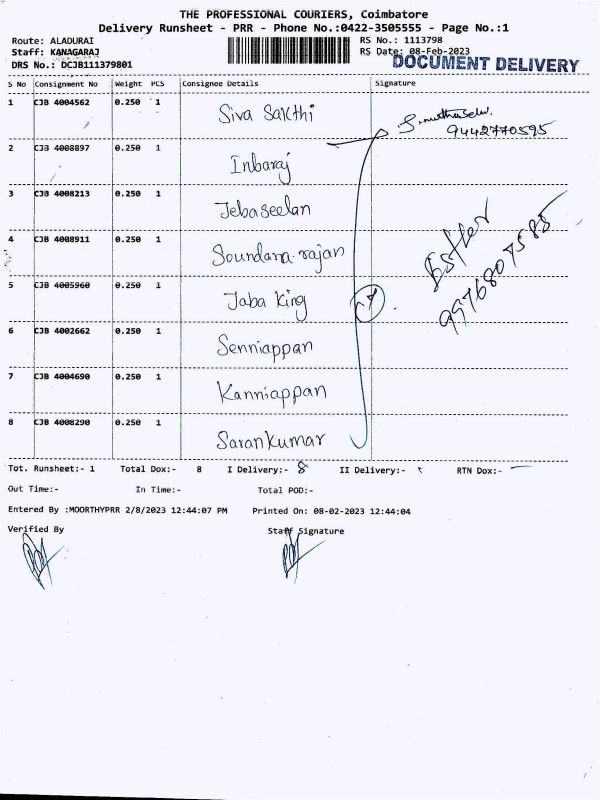 THE PROFESSIONAL COURIERS, Coimbatore
Delivery Runsheet - PRR - Phone No.:0422-3505555 - Page No.:1
Route: ALADURAI
Staff: KANAGARAJ
DRS No.: DCJB111379801
RS No.: 1113798
RS Date: 08-Feb-2023
DOCUMENT DELIVERY
S No Consignment No Weight PCS Consignee Details Signature
1 CJB 4004562 0.250 1 Siva Sakthi
9442770595
2 CJB 4008897 0.250 1 Inbaraj
3 CJB 4008213 0.250 1 Jebaseelan
4 CJB 4008911 0.250 1 Soundara rajan
Esther
9976807585
5 CJB 4005960 0.250 1 Jaba King
6 CJB 4002662 0.250 1 Senniappan
7 CJB 4004690 0.250 1 Kanniappan
8 CJB 4008290 0.250 1 Sarankumar
Tot. Runsheet:- 1 Total Dox:- 8 I Delivery:- 8 II Delivery:- RTN Dox:- —
Out Time:- In Time:- Total POD:-
Entered By :MOORTHYPRR 2/8/2023 12:44:07 PM Printed On: 08-02-2023 12:44:04
Verified By Staff Signature